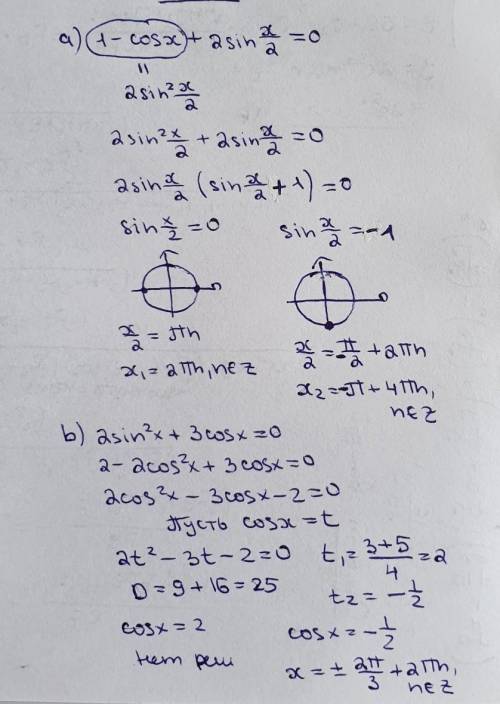 a) 1 - cosx + 2sin x/2 = 0
=
2sin² x/2
2sin² x/2 + 2sin x/2 = 0
2sin x/2 (sin x/2 + 1) = 0
sin x/2 = 0   sin x/2 = -1
x/2 = πn   x/2 = -π/2 + 2πn
x₁ = 2πn, n∈Z   x₂ = -π + 4πn, n∈Z
b) 2sin²x + 3cosx = 0
2 - 2cos²x + 3cosx = 0
2cos²x - 3cosx - 2 = 0
Пусть cosx = t
2t² - 3t - 2 = 0   t₁ = (3+5)/4 = 2
D = 9 + 16 = 25   t₂ = -1/2
cosx = 2   cosx = -1/2
Нет реш   x = ± 2π/3 + 2πn, n∈Z